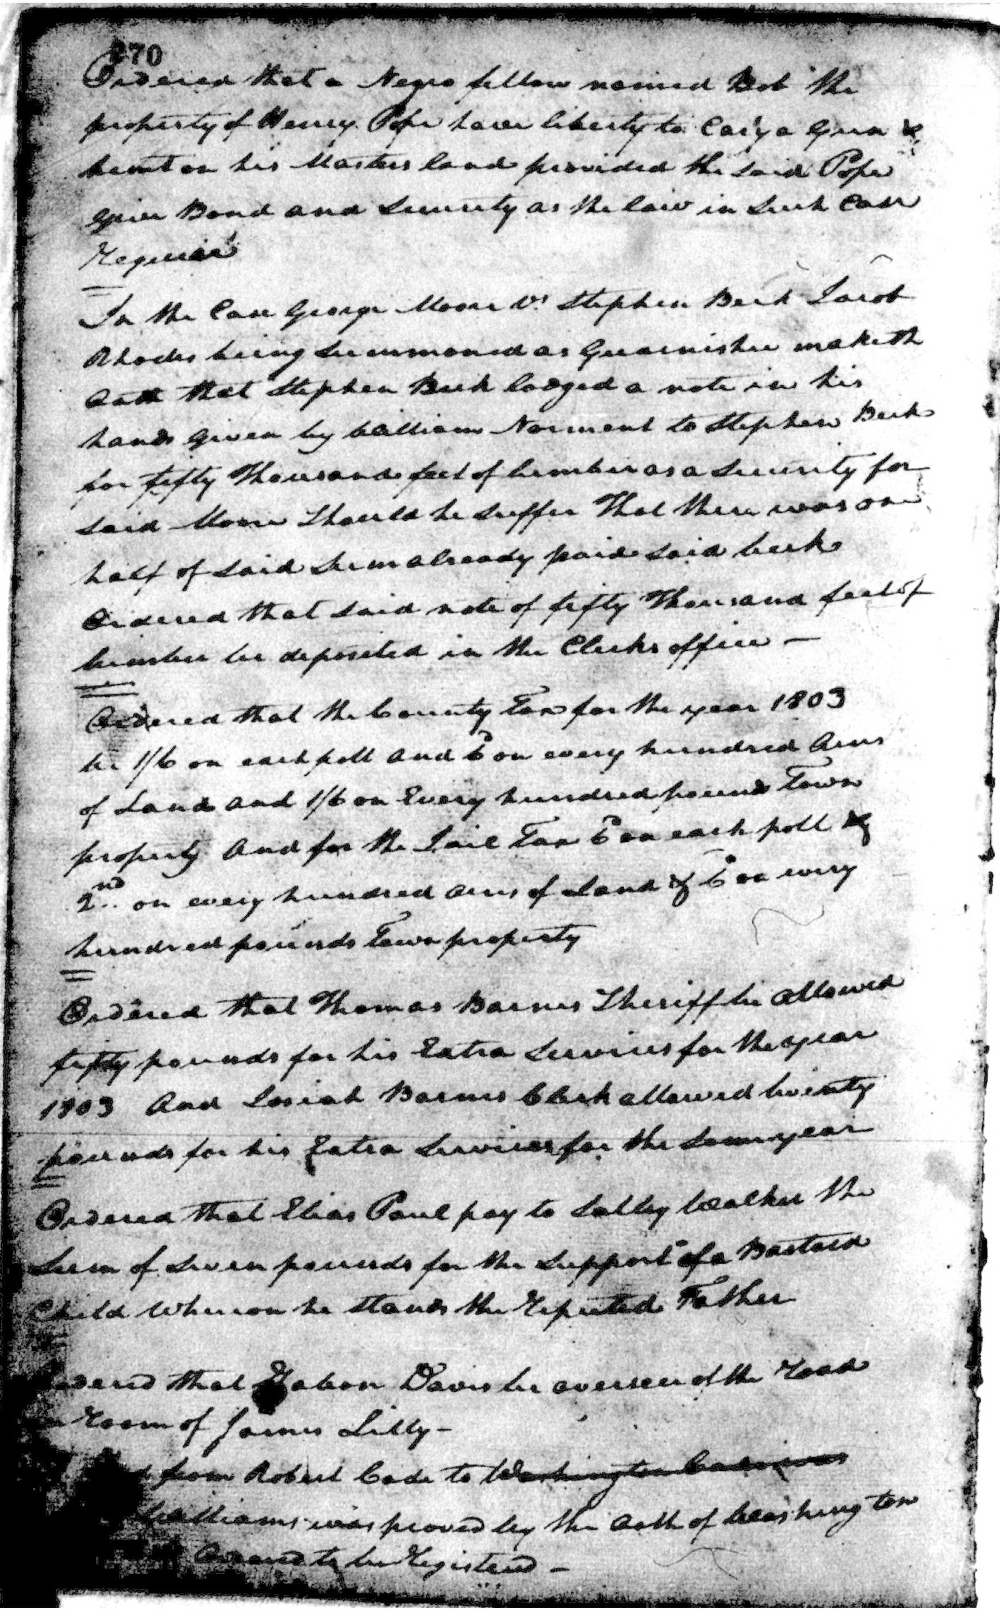 270
Ordered that a Negro fellow named Bob the
property of Henry Pope have liberty to Carry a Gun &
hunt on his Masters land provided the said Pope
give Bond and Security as the law in Such Case
Require
In the Case George Moore Vs Stephen Beck Jacob
Rhodes being Summoned as Guarnishee maketh
Oath that Stephen Beck lodged a note in his
hands given by William Norment to Stephen Beck
for fifty Thousand feet of lumber as a Security for
said Moore Should he Suffer That there was one
half of said Sum already paid said beck
Ordered that said note of fifty Thousand feet of
lumber be deposited in the Clerks office —
Ordered that the County Tax for the year 1803
be 1/6 on each poll and 6 on every hundred Acres
of Land and 1/6 on Every hundred pounds Town
property And for the Jail Tax 6 on each poll &
2nd on every hundred acres of Land & 6 on every
hundred pounds Town property
Ordered that Thomas Barnes Sheriff be allowed
fifty pounds for his Extra Services for the year
1803 And Josiah Barnes Clerk allowed twenty
pounds for his Extra Services for the Same year
Ordered that Elias Paul pay to Salley Walker the
Sum of Seven pounds for the Support of a Bastard
Child Whereon he stands the Reputed Father
that Davis be overseer of the Road
Room of James Lilly -
from Robert Cade to Washington
Williams was proved by the Oath of Washington
Ordered to be Registered -